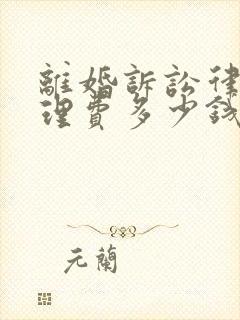 離婚訴訟律
理費多少錢
元蘭